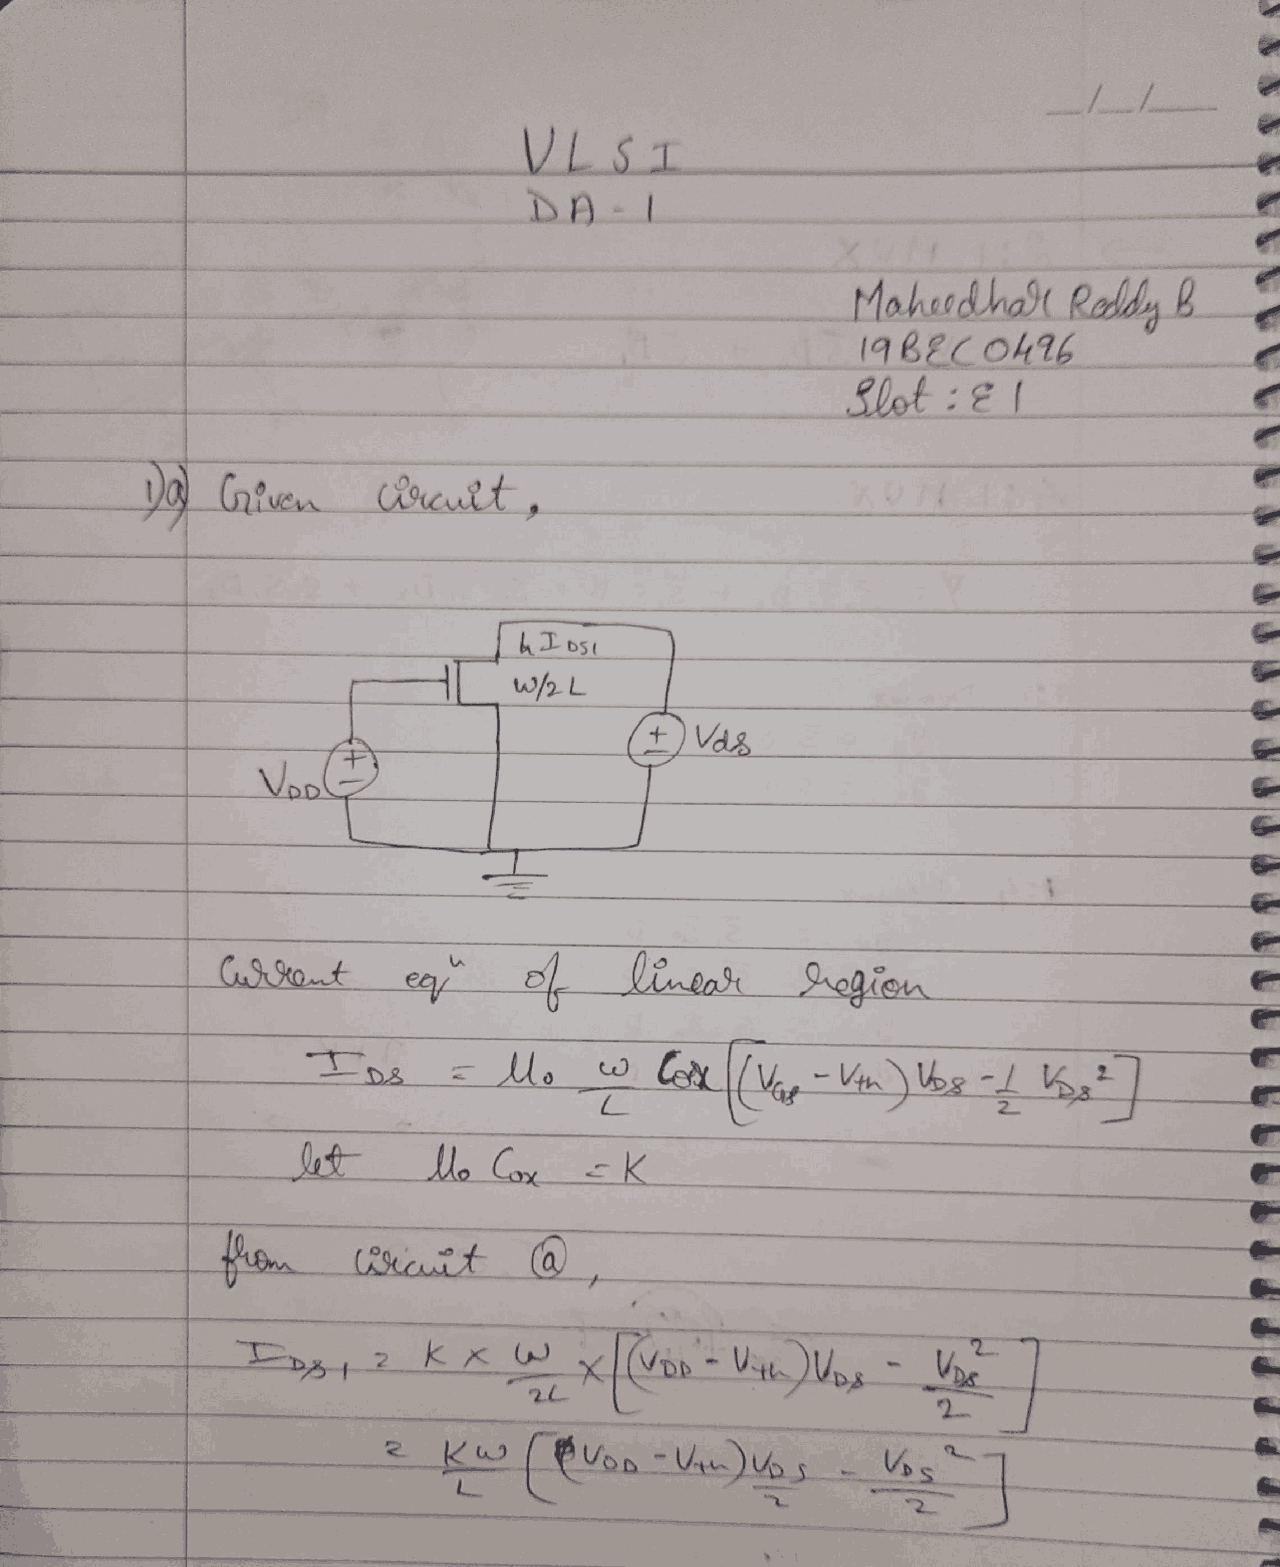 _/_/_
VLSI
DA-1
Maheedhar Reddy B
19BEC0496
Slot : E1
1)a) Given circuit,
h I DS1
W/2L
VDD
+
-
+
-
Vds
Current eqⁿ of linear region
I DS = μ₀ W/L Cox [(VGS - Vth) VDS - 1/2 VDS²]
let μ₀ Cox = K
from circuit ⓐ,
I DS1 = K x W/2L x [(VDD - Vth) VDS - VDS²/2]
= KW/L [(VDD - Vth) VDS/2 - VDS²/2]